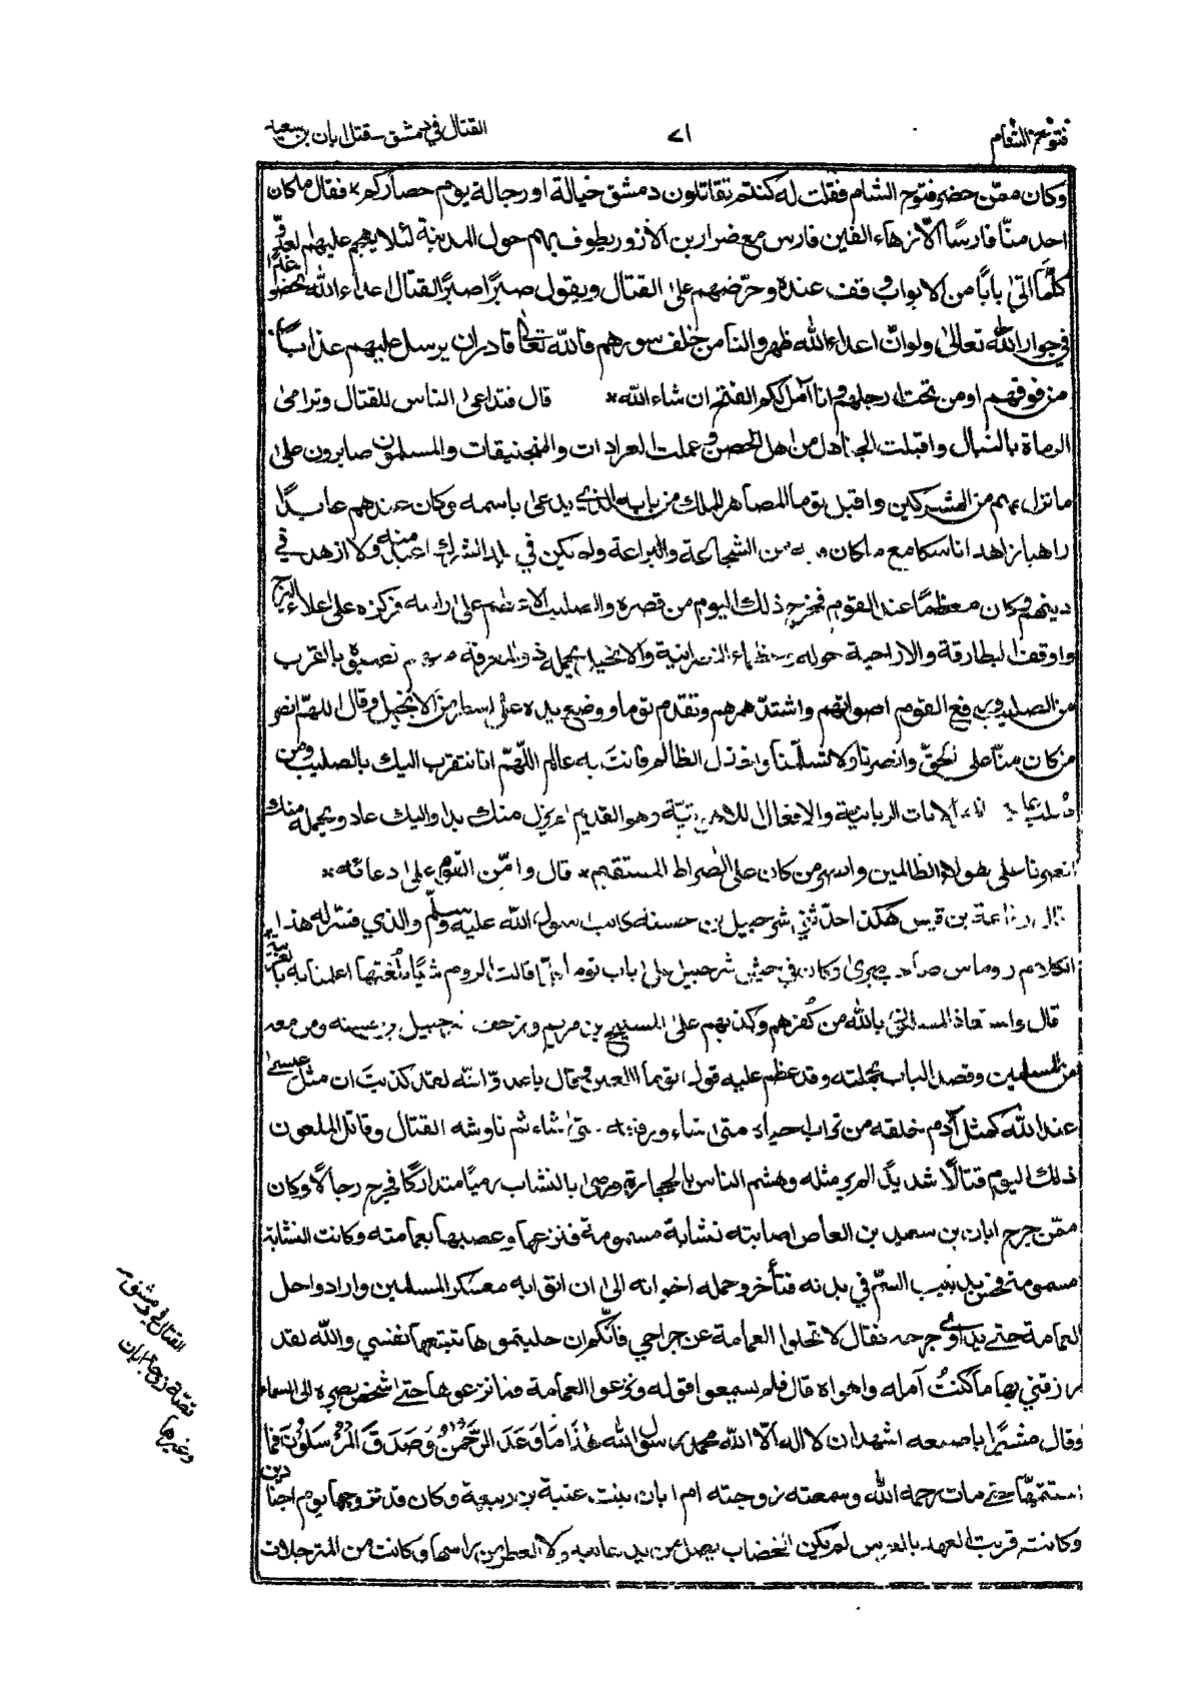 فتوح الشام
٧١
القتال في دمشق - قتل ابان بن سعيد
وكان ممّن حضر فتوح الشام فقلت له كنتم تقاتلون دمشق خيالة او رجالة يوم حصاركم * فقال ما كان
احد منّا فارسًا الّا زهاء الفين فارس مع ضرار بن الازور يطوف بهم حول المدينة لئلا يهجم عليهم العدوّ
كلّما اتى بابًا من الابواب وقف عنده وحرّضهم على القتال ويقول صبرًا صبرًا لقتال اعداء الله
في جوار الله تعالى ولو انّ اعداء الله ظهروا لنا من خلف سورهم فالله تعالى قادر ان يرسل عليهم عذابًا
من فوقهم او من تحت ارجلهم وانا آمل لكم الفتح ان شاء الله * قال فتداعى الناس للقتال وترامى
الرماة بالنبال واقبلت الجنادل من اهل الحصن وعملت العرادات والمنجنيقات والمسلمون صابرون على
ما نزل بهم من المشركين واقبل توما المصاهر الملك من بابه الذي يدعى باسمه وكان عندهم عابدًا
راهبا زاهدا ناسكا مع ما كان من الشجاعة والبراعة ولم يكن في بلد الشرك اعبد منه ولا ازهد في
دينهم وكان معظمًا عند القوم فخرج ذلك اليوم من قصره والصليب الاعظم على راسه فركزه على اعلاء البرج
واوقف البطارقة والاراحية حوله عظماء النصرانية والانجيل يحمله ذو المعرفة منهم نصبوه بالقرب
من الصليب ورفع القوم اصواتهم واشتد همرهم وتقدم توما ووضع يده على اسطار من الانجيل وقال اللهم انصر
من كان منّا على الحقّ وانصرنا ولا تسلمنا واخذل الظالم فانت به عالم اللّهمّ اننا نتقرب اليك بالصليب ومن
صلب الايات الربانية والافعال اللاهوتيّة وهو القديم لم يزل منك بدا واليك عاد
انصرنا على هؤلاء الظالمين وانصر من كان على الصراط المستقيم * قال وامّن القوم على دعائه *
قال رفاعة بن قيس هكذا حدّثني شرحبيل بن حسنة كاتب رسول الله عليه وسلّم والذي فسّر له هذا
الكلام روماس صاحب بصرى وكان في جيش شرحبيل على باب توما قالت الروم شيًا بلغتها اعلمنا به
قال واستعاذ المسلمون بالله من كفرهم وكذبهم على المسيح بن مريم وزحف شرحبيل بن حسنة ومن معه
من المسلمين وقصد الباب بحملته وقد عظم عليه قول توما اللعين فقال يا عدوّ الله لقد كذبت ان مثل عيسى
عند الله كمثل آدم خلقه من تراب احياه متى شاء ورفعه متى شاء ثم ناوشه القتال وقاتل الملعون
ذلك اليوم قتالًا شديدًا لم ير مثله وهشم الناس بالحجارة ورمى بالنشاب رميًا متداركًا فجرح رجالًا وكان
ممّن جرح ابان بن سعيد بن العاص اصابته نشابة مسمومة فنزعها وعصبها بعمامته وكانت النشابة
مسمومة فحس بدبيب السمّ في بدنه فتأخر وحمله اخوانه الى ان اتوا به معسكر المسلمين وارادوا حل
العمامة حتى يداوى جرحه فقال لا تحلوا العمامة عن جراحي فانّكم ان حليتموها تبتعها نفسي والله لقد
رزقني بها ما كنتُ آمله واهواه قال فلم يسمعوا قوله ونزعوا العمامة فما نزعوها حتى شخص بصره الى السماء
وقال مشيرًا باصبعه اشهد ان لا اله الّا الله محمد رسول الله هٰذَا مَا وَعَدَ الرَّحْمٰنُ وَصَدَقَ الْمُرْسَلُوْنَ فما
استتمّها حتى مات رحمه الله وسمعته زوجته ام ابان بنت عتبة بن ربيعة وكان قد تزوجها يوم اجنادين
وكانت قريبة العهد بالعرس لم يكن الخضاب يصل من يد عاتبه ولا العطر من راسها وكانت من المترجلات
القتال في دمشق
قصّة زوجة ابان
وغيرها